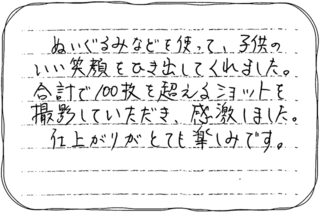 ぬいぐるみなどを使って、子供の
いい笑顔をひき出してくれました。
合計で100枚を超えるショットを
撮影していただき、感激しました。
仕上がりがとても楽しみです。